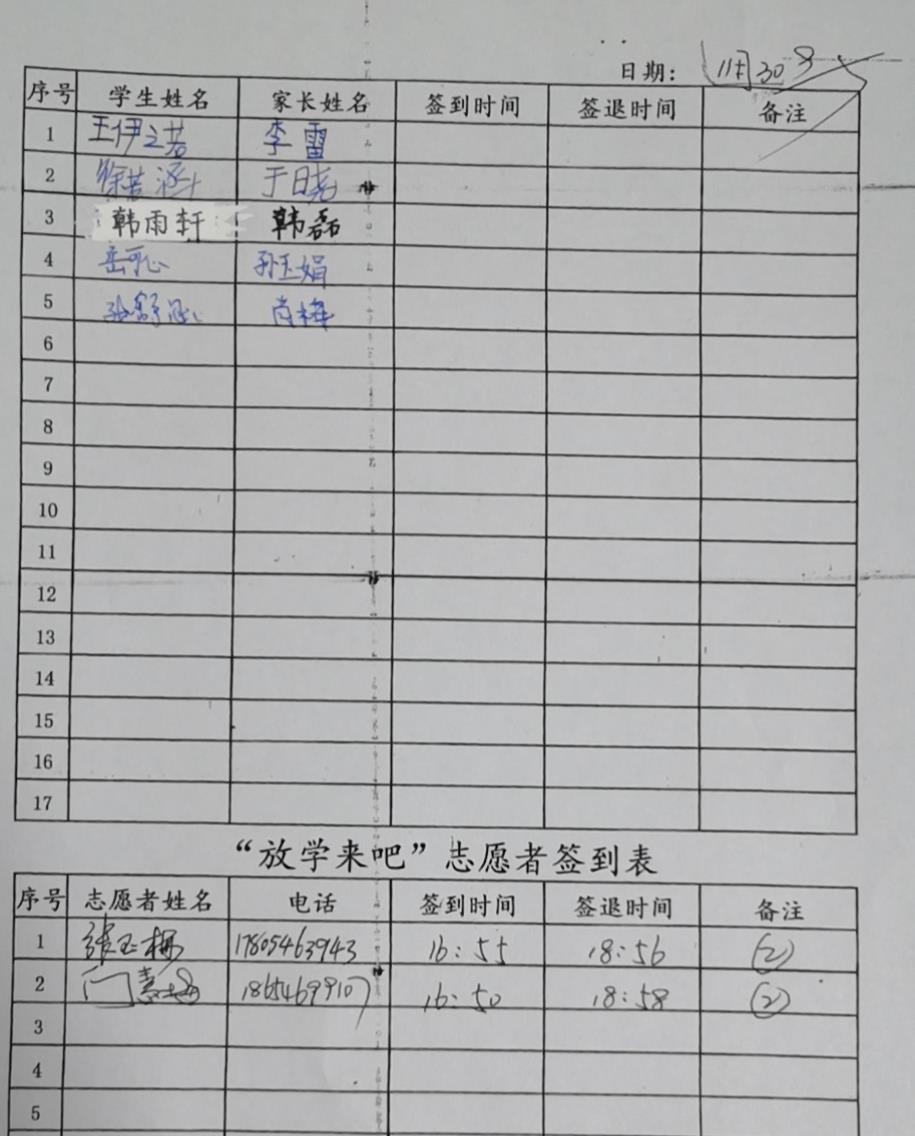 日期: 11月30日
序号 学生姓名 家长姓名 签到时间 签退时间 备注
1 王伊之若 李雷
2 徐若涵 于晓
3 韩雨轩 韩磊
4 岳可心 孙玉娟
5 张舒 肖梅
6
7
8
9
10
11
12
13
14
15
16
17
“放学来吧”志愿者签到表
序号 志愿者姓名 电话 签到时间 签退时间 备注
1 张玉梅 17805463943 16:55 18:56 (2)
2 门 18654699107 16:50 18:58 (2)
3
4
5